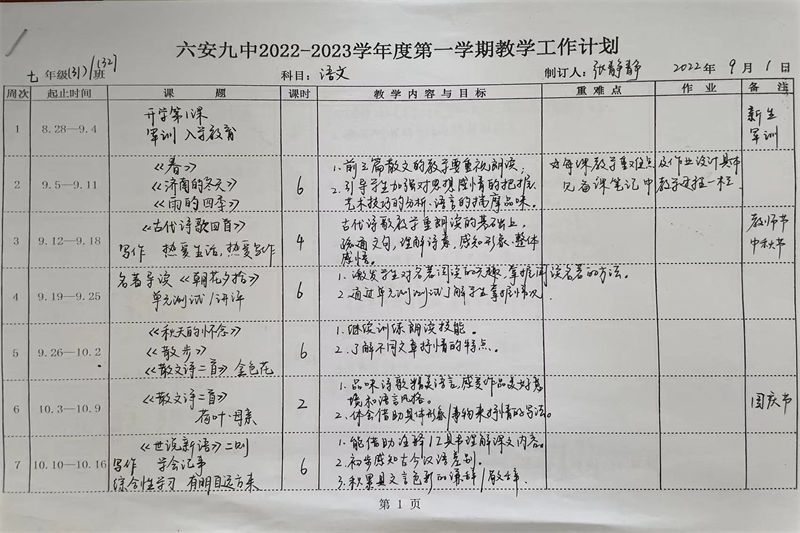 六安九中2022-2023学年度第一学期教学工作计划
七 年级(31)/(32)班 科目：语文 制订人：张静静 2022年 9月 1日
周次 起止时间 课题 课时 教学内容与目标 重难点 作业 备注
1 8.28—9.4 开学第1课 新生
军训 入学教育 军训
2 9.5—9.11 《春》 6 1.前三篇散文的教学要重视朗读；
《济南的冬天》 2.引导学生加强对思想感情的把握、
《雨的四季》 艺术技巧的分析、语言的揣摩品味。
各课教学重难点及作业设计具体
见备课笔记中教学过程一栏
3 9.12—9.18 《古代诗歌四首》 4 古代诗歌教学重朗读的基础上， 教师节
写作 热爱生活，热爱写作 疏通文句，理解诗意，感知形象、整体 中秋节
感悟。
4 9.19—9.25 名著导读《朝花夕拾》 6 1.激发学生对名著阅读的兴趣，掌握阅读名著的方法。
单元测试/讲评 2.通过单元测试了解学生掌握情况
5 9.26—10.2 《秋天的怀念》 6 1.继续训练朗读技能。
《散步》 2.了解不同文章抒情的特点。
《散文诗二首》金色花
6 10.3—10.9 《散文诗二首》 2 1.品味诗歌精美语言，感受作品美好意 国庆节
荷叶·母亲 境和语言风格。
2.体会借助具体形象/事物来抒情的写法。
7 10.10—10.16 《世说新语》二则 6 1.能借助注释/工具书理解课文内容。
写作 学会记事 2.初步感知古今汉语差别。
综合性学习 有朋自远方来 3.积累文言
第 1 页